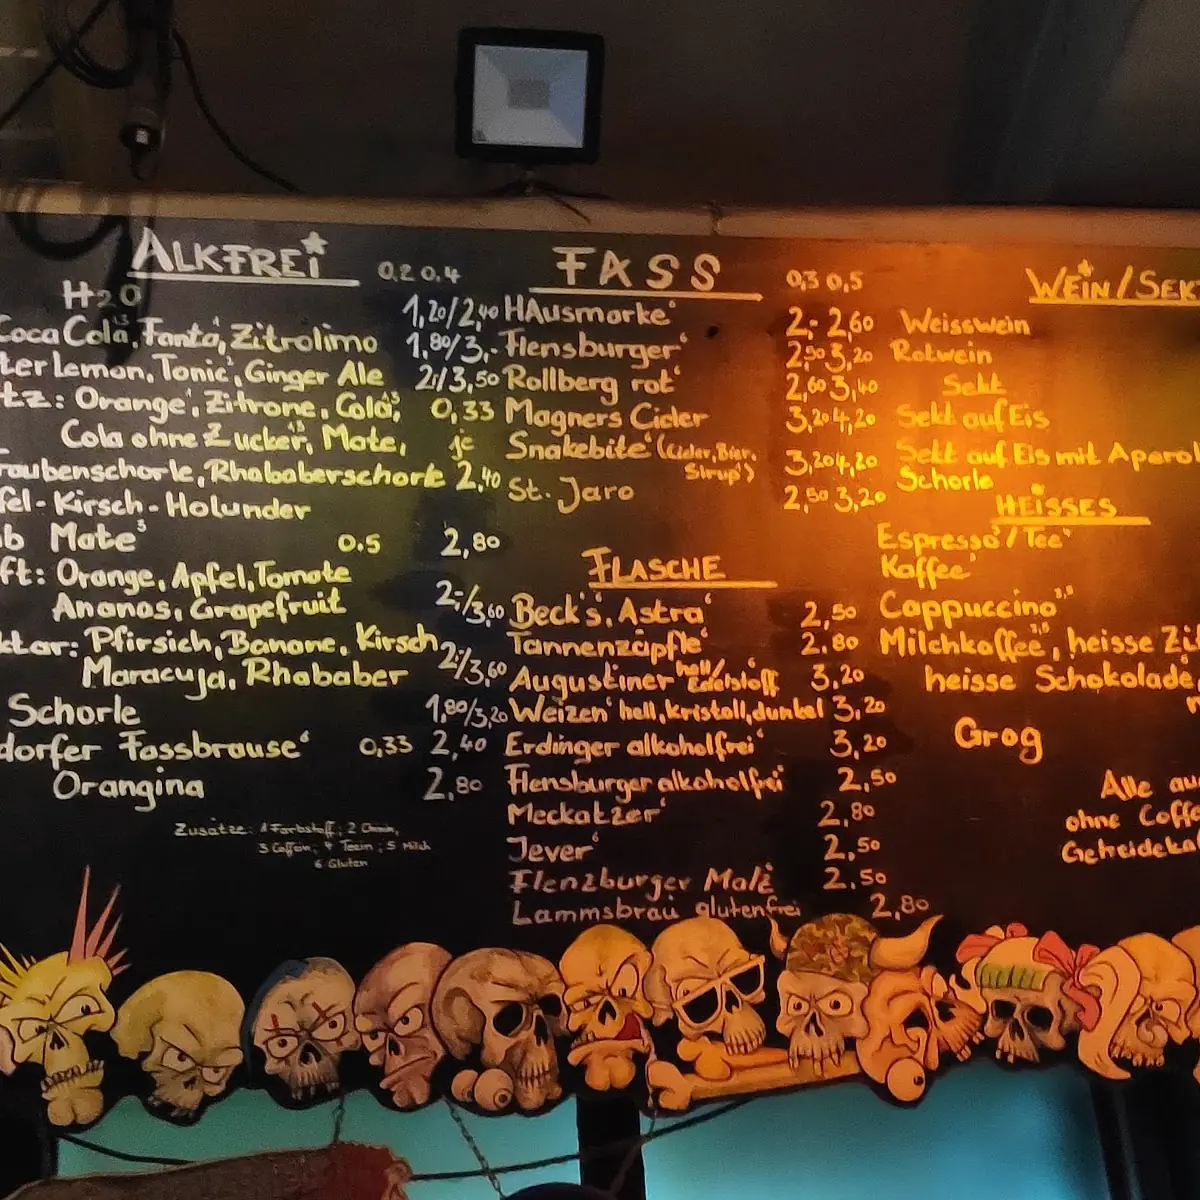 ALKFREI 0,2 0,4
H2O 1,20/2,40
Coca Cola, Fanta, Zitrolimo 1,80/3,-
ter Lemon, Tonic, Ginger Ale 2,-/3,50
tz: Orange, Zitrone, Cola, 0,33
Cola ohne Zucker, Mate, je
raubenschorle, Rhababerschorle 2,40
fel-Kirsch-Holunder
b Mate 0.5 2,80
ft: Orange, Apfel, Tomate
Ananas, Grapefruit 2,-/3,60
ktar: Pfirsich, Banane, Kirsch
Maracuja, Rhababer 2,-/3,60
Schorle 1,80/3,20
dorfer Fassbrause⁶ 0,33 2,40
Orangina 2,80
Zusätze: 1 Farbstoff; 2 Chinin,
3 Coffein; 4 Teein; 5 Milch
6 Gluten
FASS 0,3 0,5
HAusmarke⁶ 2,- 2,60
Flensburger⁶ 2,50 3,20
Rollberg rot⁶ 2,60 3,40
Magners Cider 3,20 4,20
Snakebite⁶ (Cider, Bier,
Sirup) 3,20 4,20
St. Jaro 2,50 3,20
FLASCHE
Beck's, Astra⁶ 2,50
Tannenzäpfle⁶ 2,80
Augustiner hell/Edelstoff 3,20
Weizen hell, kristall, dunkel 3,20
Erdinger alkoholfrei⁶ 3,20
Flensburger alkoholfrei⁶ 2,50
Meckatzer⁶ 2,80
Jever⁶ 2,50
Flenzburger Malz 2,50
Lammsbräu glutenfrei 2,80
WEIN/SEK
Weisswein
Rotwein
Sekt
Sekt auf Eis
Sekt auf Eis mit Aperol
Schorle
HEISSES
Espresso³/Tee⁴
Kaffee³
Cappuccino³,⁵
Milchkaffee³,⁵, heisse Zi
heisse Schokolade,
Grog
Alle au
ohne Coffe
Getreideka